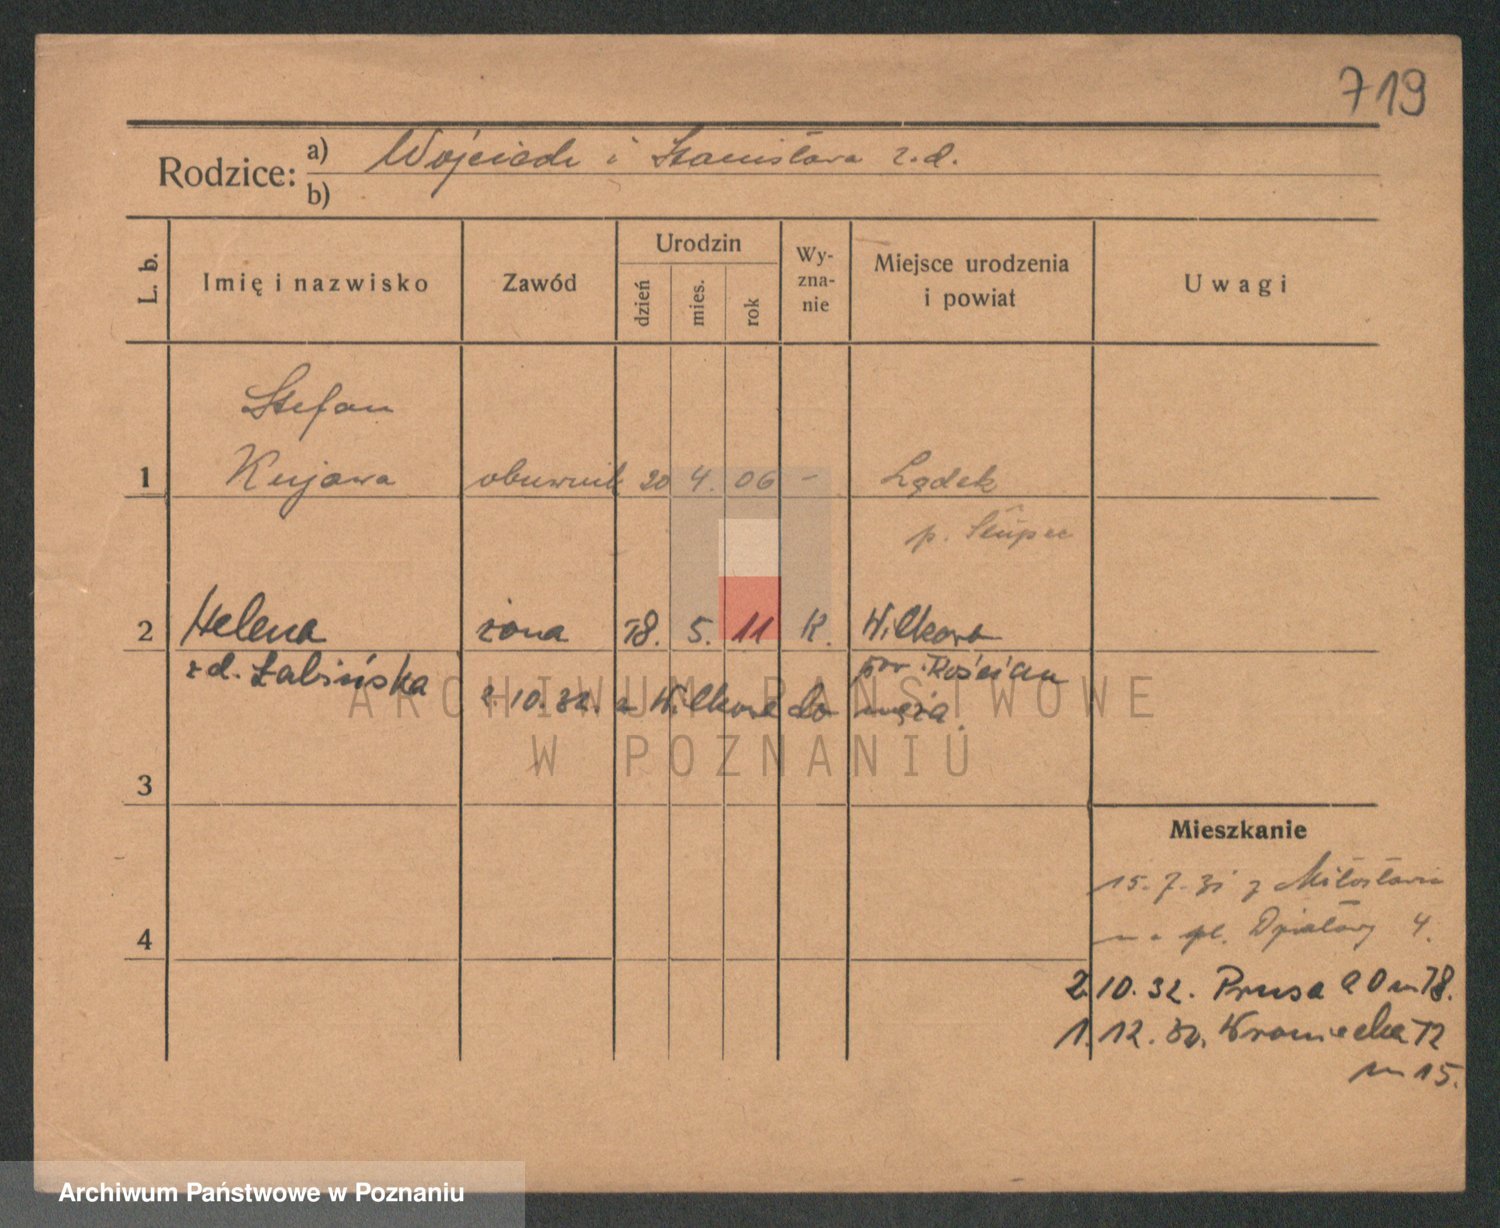 719
Rodzice: a) Wojciech i Stanisława z.d.
b)
L. b.
Imię i nazwisko
Zawód
Urodzin
dzień
mies.
rok
Wy-
zna-
nie
Miejsce urodzenia
i powiat
Uwagi
Stefan
1 Kujawa obuwnik 20 4. 06 - Lądek
p. Słupca
2 Helena żona 18. 5. 11 K.
zd. Łabińska pow. Kościan
2.10.32. z do męża.
ARCHIWUM PAŃSTWOWE
W POZNANIU
3
Mieszkanie
15.7.31 z Miłosławia
4 pl. Działowy 4.
2.10.32. Prusa m 18.
1.12.32. Wroniecka 12
m 15.
Archiwum Państwowe w Poznaniu